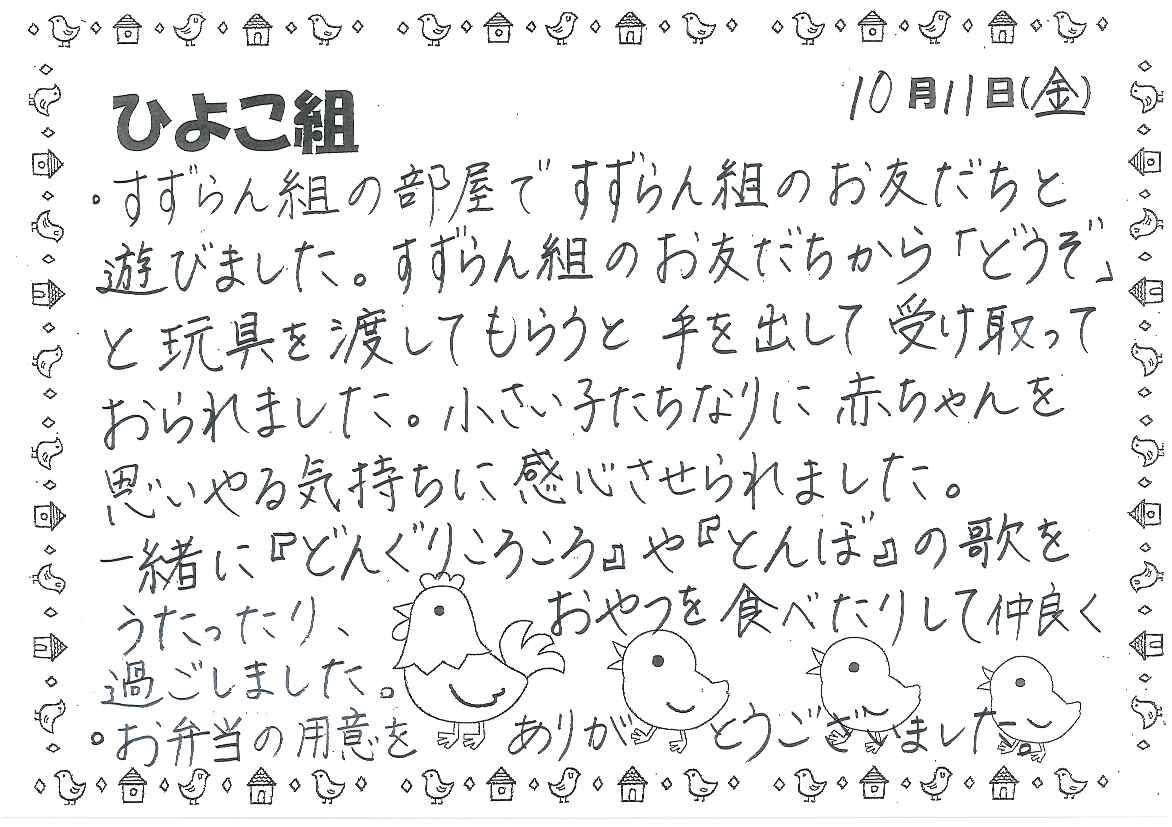 ひよこ組
10月11日(金)
・すずらん組の部屋ですずらん組のお友だちと
遊びました。すずらん組のお友だちから「どうぞ」
と玩具を渡してもらうと手を出して受け取って
おられました。小さい子たちなりに赤ちゃんを
思いやる気持ちに感心させられました。
一緒に『どんぐりころころ』や『とんぼ』の歌を
うたったり、おやつを食べたりして仲良く
過ごしました。
・お弁当の用意をありがとうございました。